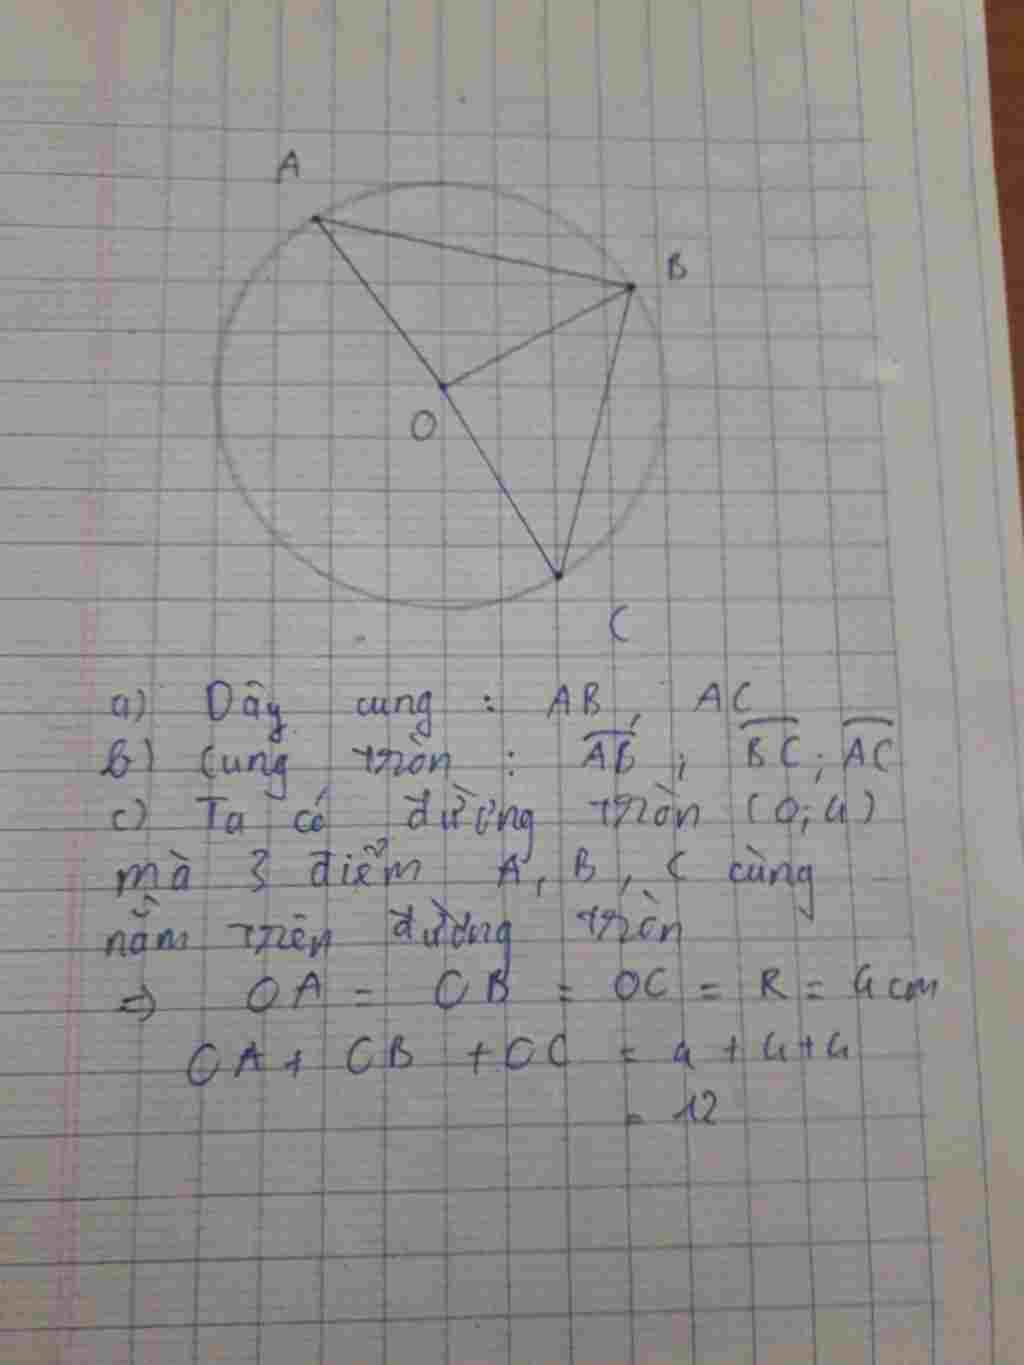 A
B
O
C
a) Dây cung : AB, AC
b) Cung tròn : AB ; BC ; AC
c) Ta có đường tròn (O; 4)
mà 3 điểm A, B, C cùng
nằm trên đường tròn
=> OA = OB = OC = R = 4cm
OA + OB + OC = 4 + 4 + 4
= 12